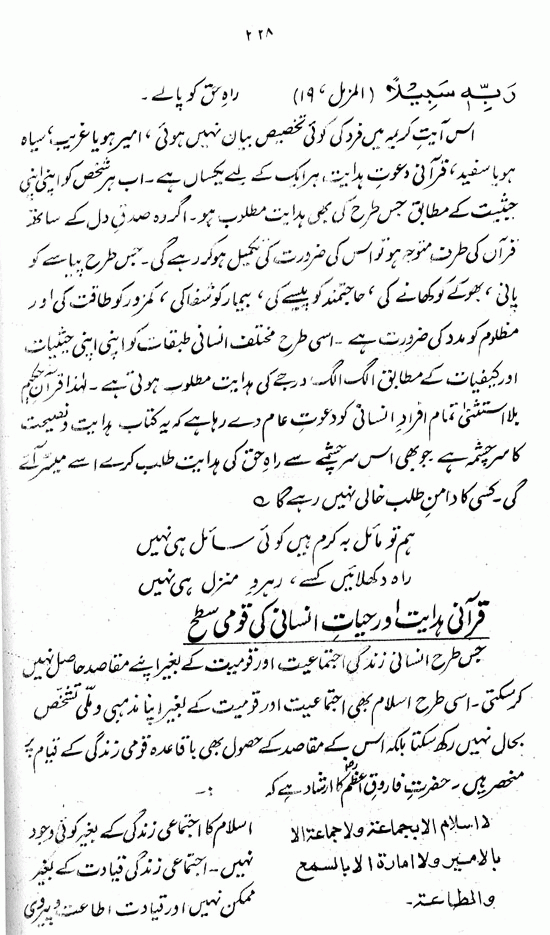 ۲۲۸
رَبِّهٖ سَبِيْلًا (المزمل ،۱۹) راہِ حق کو پالے۔
اس آیتِ کریمہ میں فرد کی کوئی تخصیص بیان نہیں ہوئی ، امیر ہو یا غریب ، سیاہ
ہو یا سفید، قرآنی دعوتِ ہدایت ہر ایک کے لیے یکساں ہے۔ اب ہر شخص کو اپنی اپنی
حیثیت کے مطابق جس طرح کی بھی ہدایت مطلوب ہو۔ اگر وہ صدقِ دل کے ساتھ
قرآن کی طرف متوجہ ہو تو اس کی ضرورت کی تکمیل ہو کر رہے گی۔ جس طرح پیاسے کو
پانی ، بھوکے کو کھانے کی ، حاجتمند کو پیسے کی ، بیمار کو شفا کی ، کمزور کو طاقت کی اور
مظلوم کو مدد کی ضرورت ہے ۔ اسی طرح مختلف انسانی طبقات کو اپنی اپنی حیثیات
اور کیفیات کے مطابق الگ الگ درجے کی ہدایت مطلوب ہوتی ہے۔ لہٰذا قرآن حکیم
بلا استثنیٰ تمام افرادِ انسانی کو دعوتِ عام دے رہا ہے کہ یہ کتاب ہدایت و نصیحت
کا سرچشمہ ہے جو بھی اس سرچشمے سے راہِ حق کی ہدایت طلب کرے اسے میسر آئے
گی۔ کسی کا دامنِ طلب خالی نہیں رہے گا ؎
ہم تو مائل بہ کرم ہیں کوئی سائل ہی نہیں
راہ دکھلائیں کسے ، رہروِ منزل ہی نہیں
قرآنی ہدایت اور حیاتِ انسانی کی قومی سطح
جس طرح انسانی زندگی اجتماعیت، اور قومیت کے بغیر اپنے مقاصد حاصل نہیں
کر سکتی۔ اسی طرح اسلام بھی اجتماعیت اور قومیت کے بغیر اپنا مذہبی و ملّی تشخص
بحال نہیں رکھ سکتا بلکہ اس کے مقاصد کے حصول بھی باقاعدہ قومی زندگی کے قیام پر
منحصر ہیں ۔ حضرت فاروق اعظمؓ کا ارشاد ہے کہ :۔
لا اسلام الا بجماعۃ ولا جماعۃ الا
بالامیر ولا امارۃ الا بالسمع
والطاعۃ۔
اسلام کا اجتماعی زندگی کے بغیر کوئی وجود
نہیں ۔ اجتماعی زندگی قیادت کے بغیر
ممکن نہیں اور قیادت اطاعت و پیروی